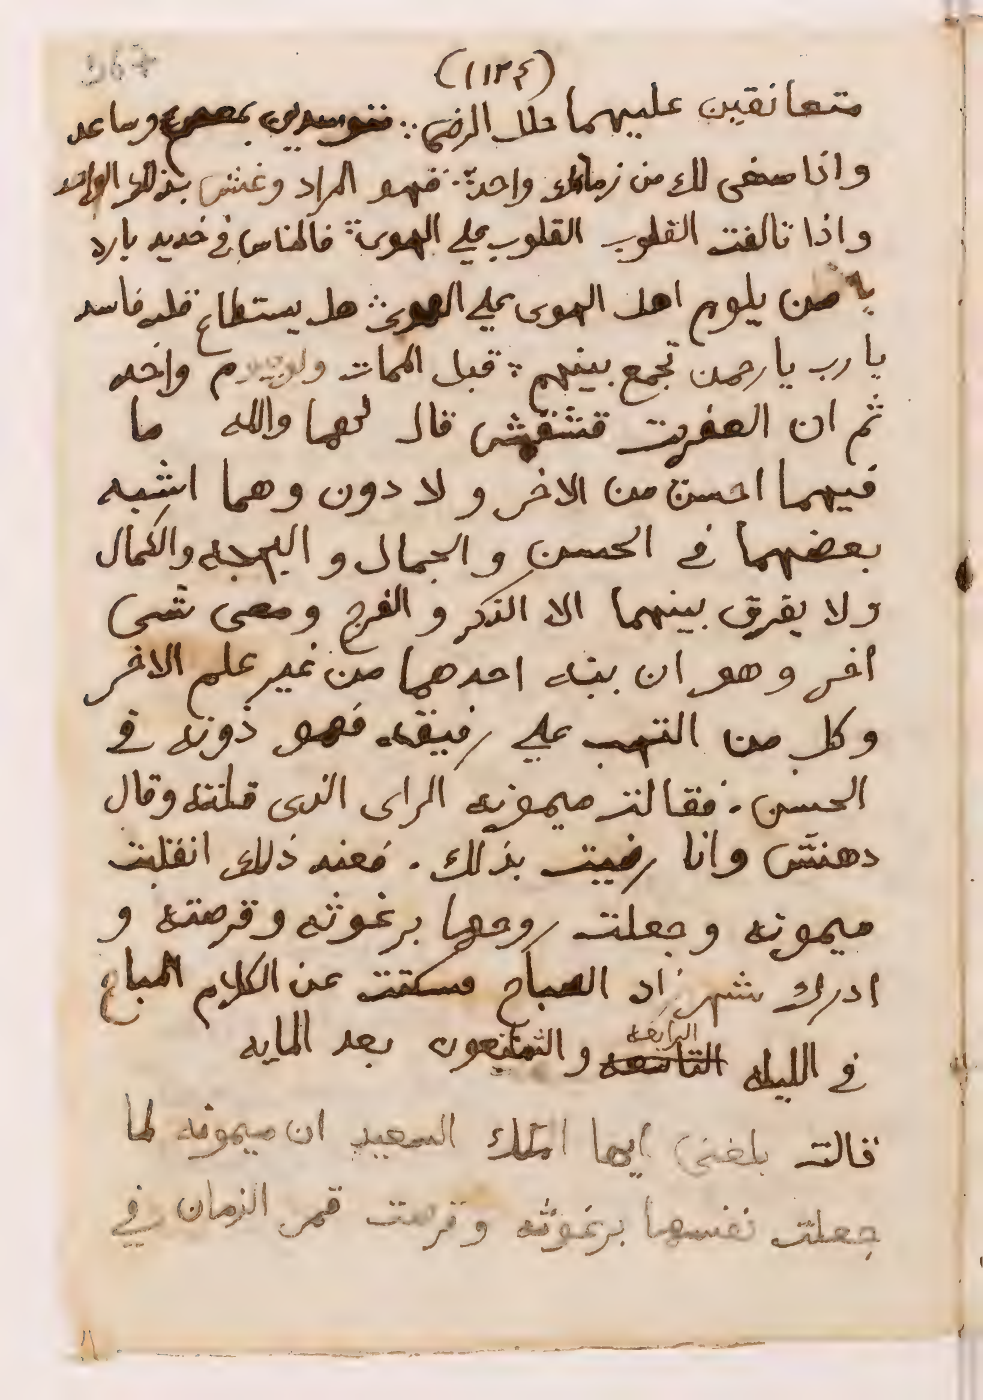 367
(١١٣٤)
متعانقين عليهما حلل الرضى ∴ متوسدين بمعصم وساعد
واذا صفى لك من زمانك واحد ∴ فهو المراد وعش بذلك الواحد
واذا تالفت القلوب القلوب على الهوى ∴ فالناس في حديد بارد
يا من يلوم اهل الهوى على الهوى ∴ هل يستطاع قلب فاسد
يا رب يا رحمن تجمع بينهم ∴ قبل الممات ولو بيوم واحد
ثم ان العفريت قشقش قال لهما والله ما
فيهما احسن من الاخر ولا دون وهما اشبه
بعضهما في الحسن والجمال والبهجه والكمال
ولا يفرق بينهما الا الذكر والفرج ومعى شى
اخر وهو ان ينبه احدهما من غير علم الاخر
وكل من التهب على رفيقه فهو دونه في
الحسن . فقالت ميمونه الراى الذى قلته وقال
دهنش وانا رضيت بذلك . فعند ذلك انقلبت
ميمونه وجعلت روحها برغوثه وقرصته و
ادرك شهرزاد الصباح فسكتت عن الكلام المباح
في الليله التاسعه الرابعه و بعد المايه
قالت بلغنى ايها الملك السعيد ان ميمونه لما
جعلت نفسها برغوثه وقرصت قمر الزمان في